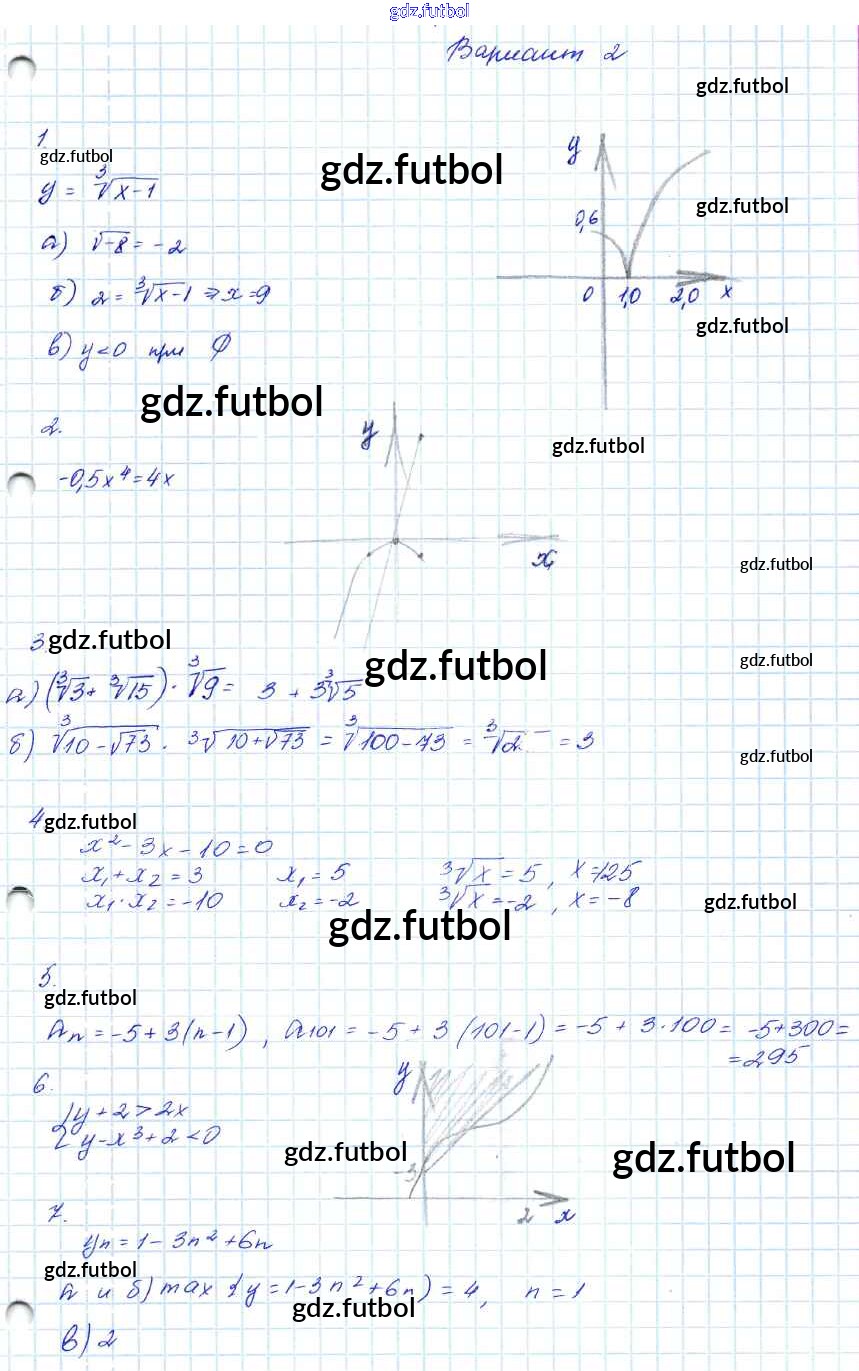 gdz.futbol
Вариант 2
gdz.futbol
1.
gdz.futbol
gdz.futbol
y = ∛(x-1)
y
gdz.futbol
0,6
а) √-8 = -2
б) 2 = ∛(x-1) ⇒ x = 9
0 1,0 2,0 x
gdz.futbol
в) y<0 при ∅
gdz.futbol
2.
y
gdz.futbol
-0,5x⁴ = 4x
x
gdz.futbol
3 gdz.futbol
gdz.futbol
gdz.futbol
а) (∛3 + ∛15) · ∛9 = 3 + 3∛5
б) ∛(10-√73) · ∛(10+√73) = ∛(100-73) = ∛2 = 3
gdz.futbol
4 gdz.futbol
x² - 3x - 10 = 0
x₁ + x₂ = 3 x₁ = 5 ∛x = 5, x = 125
x₁ · x₂ = -10 x₂ = -2 ∛x = -2, x = -8
gdz.futbol
gdz.futbol
5.
gdz.futbol
aₙ = -5 + 3(n-1), a₁₀₁ = -5 + 3(101-1) = -5 + 3·100 = -5+300 =
= 295
6.
y
{y + 2 > 2x
{y - x³ + 2 < 0
gdz.futbol
gdz.futbol
-3
2 x
7.
yₙ = 1 - 3n² + 6n
gdz.futbol
а и б) max {y = 1 - 3n² + 6n) = 4, n = 1
gdz.futbol
в) 2